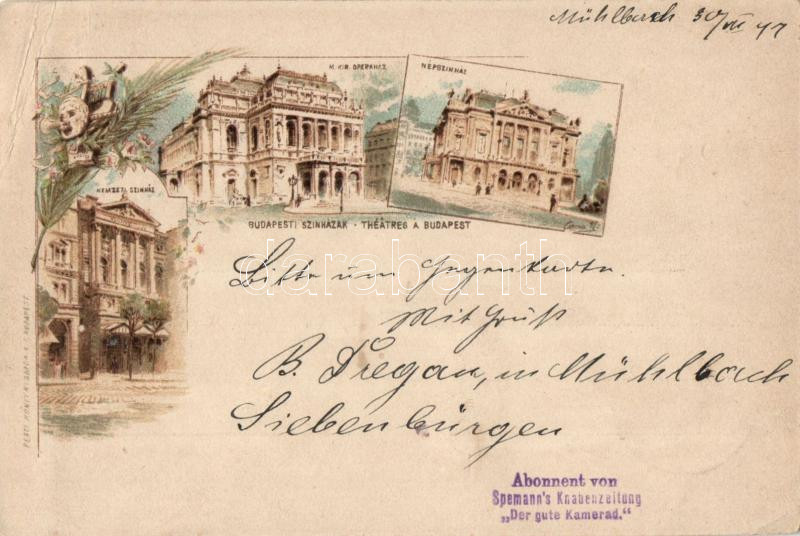 Mühlbach 30/VII 97
M. KIR. OPERAHÁZ
NÉPSZINHÁZ
NEMZETI SZINHÁZ
BUDAPESTI SZINHÁZAK - THÉÂTRES A BUDAPEST
darabanth
Bitte um Gegenkarte.
Mit Gruß
B. Dregan, in Mühlbach
Siebenbürgen
Abonnent von
Spemann's Knabenzeitung
„Der gute Kamerad."